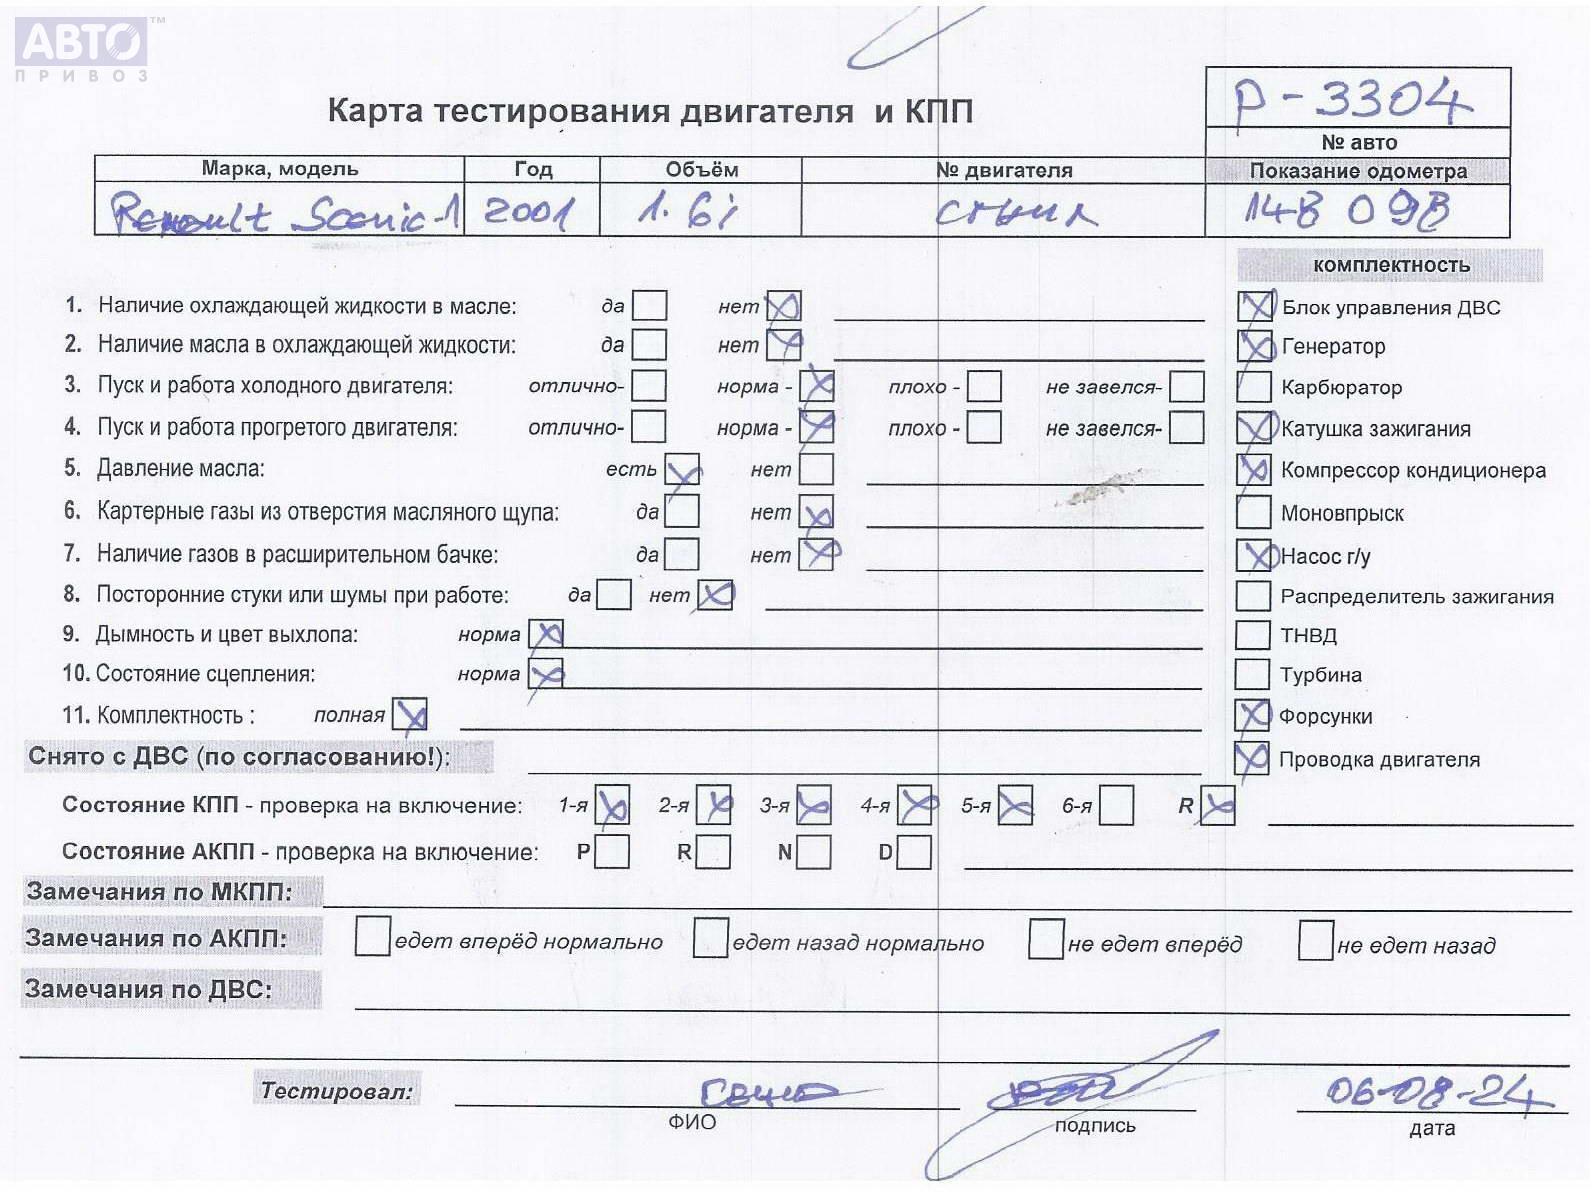 АВТО™
ПРИВОЗ
Р-3304
Карта тестирования двигателя и КПП
№ авто
Марка, модель Год Объём № двигателя Показание одометра
Renault Scenic-1 2001 1.6i 148 098
комплектность
1. Наличие охлаждающей жидкости в масле: да нет Блок управления ДВС
2. Наличие масла в охлаждающей жидкости: да нет Генератор
3. Пуск и работа холодного двигателя: отлично- норма - плохо - не завелся- Карбюратор
4. Пуск и работа прогретого двигателя: отлично- норма - плохо - не завелся- Катушка зажигания
5. Давление масла: есть нет Компрессор кондиционера
6. Картерные газы из отверстия масляного щупа: да нет Моновпрыск
7. Наличие газов в расширительном бачке: да нет Насос г/у
8. Посторонние стуки или шумы при работе: да нет Распределитель зажигания
9. Дымность и цвет выхлопа: норма ТНВД
10. Состояние сцепления: норма Турбина
11. Комплектность : полная Форсунки
Снято с ДВС (по согласованию!): Проводка двигателя
Состояние КПП - проверка на включение: 1-я 2-я 3-я 4-я 5-я 6-я R
Состояние АКПП - проверка на включение: P R N D
Замечания по МКПП:
Замечания по АКПП: едет вперёд нормально едет назад нормально не едет вперёд не едет назад
Замечания по ДВС:
Тестировал: 06-08-24
ФИО подпись дата